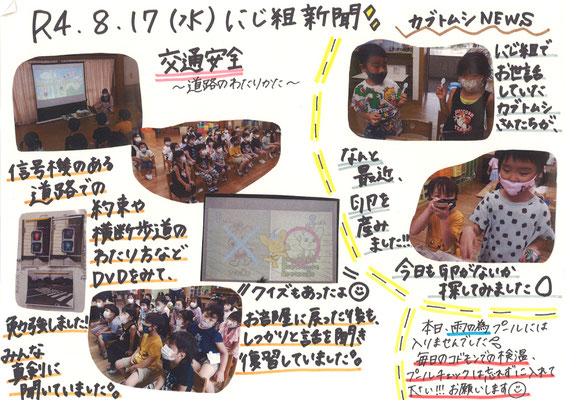 R4.8.17(水)にじ組新聞
交通安全
～道路のわたりかた～
信号機のある
道路での
約束や
横断歩道の
わたり方など
DVDをみて、
勉強しました!
みんな
真剣に
聞いていました。
"クイズもあったよ
お部屋に戻った後も、
しっかりと話を聞き
復習していました。
カブトムシNEWS
にじ組で
お世話
していた
カブトムシ
さんたちが、
なんと
最近、
卵を
産み
ました!!!
今日も卵がないか
探してみました
本日、雨の為プールには
入りませんでした。
毎日のコドモンでの検温、
プールチェックは忘れずに入れて
下さい!!!お願いします